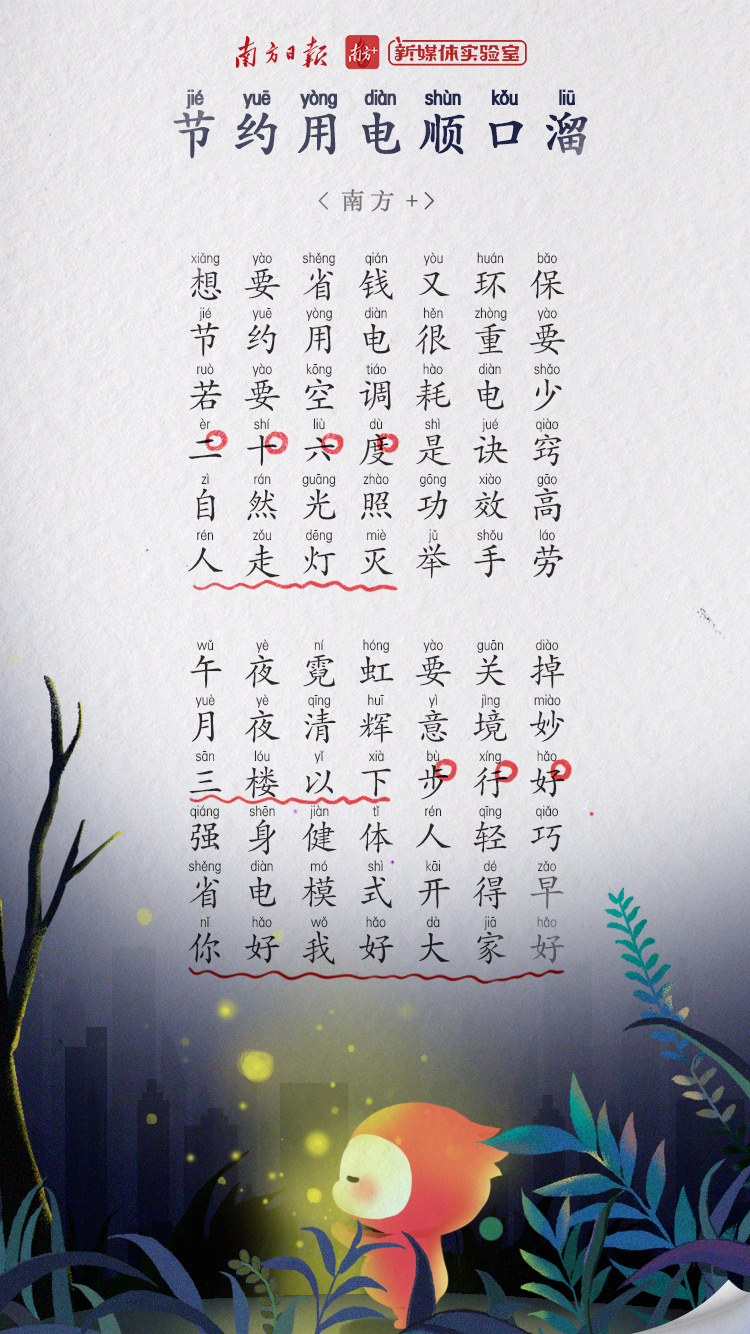 南方日报 南方+ 新媒体实验室
jié yuē yòng diàn shùn kǒu liū
节约用电顺口溜
〈南方+〉
xiǎng yào shěng qián yòu huán bǎo
想要省钱又环保
jié yuē yòng diàn hěn zhòng yào
节约用电很重要
ruò yào kōng tiáo hào diàn shǎo
若要空调耗电少
èr shí liù dù shì jué qiào
二十六度是诀窍
zì rán guāng zhào gōng xiào gāo
自然光照功效高
rén zǒu dēng miè jǔ shǒu láo
人走灯灭举手劳
wǔ yè ní hóng yào guān diào
午夜霓虹要关掉
yuè yè qīng huī yì jìng miào
月夜清辉意境妙
sān lóu yǐ xià bù xíng hǎo
三楼以下步行好
qiáng shēn jiàn tǐ rén qīng qiǎo
强身健体人轻巧
shěng diàn mó shì kāi dé zǎo
省电模式开得早
nǐ hǎo wǒ hǎo dà jiā hǎo
你好我好大家好